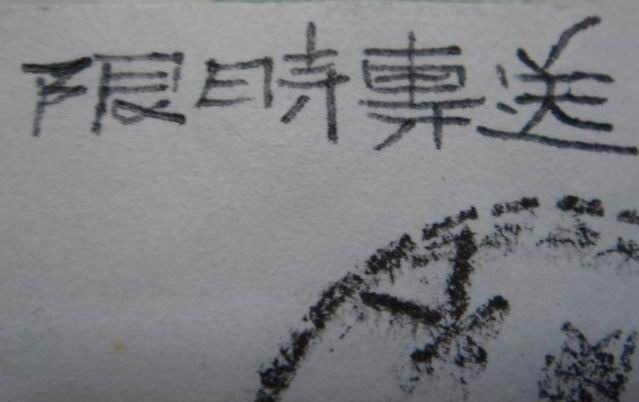 限時專送